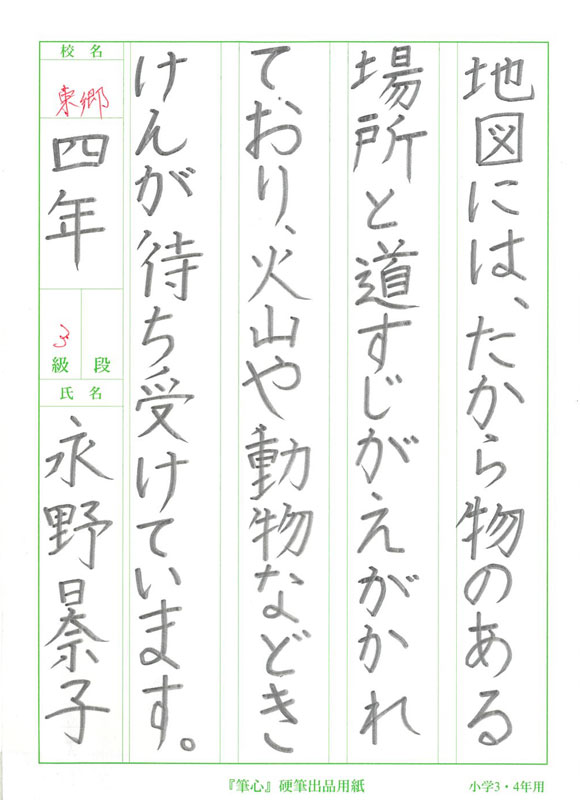 地図には、たから物のある
場所と道すじがえがかれ
ており、火山や動物などき
けんが待ち受けています。
校名
東郷
四年
3級
段
氏名
永野景子
『筆心』硬筆出品用紙
小学3・4年用